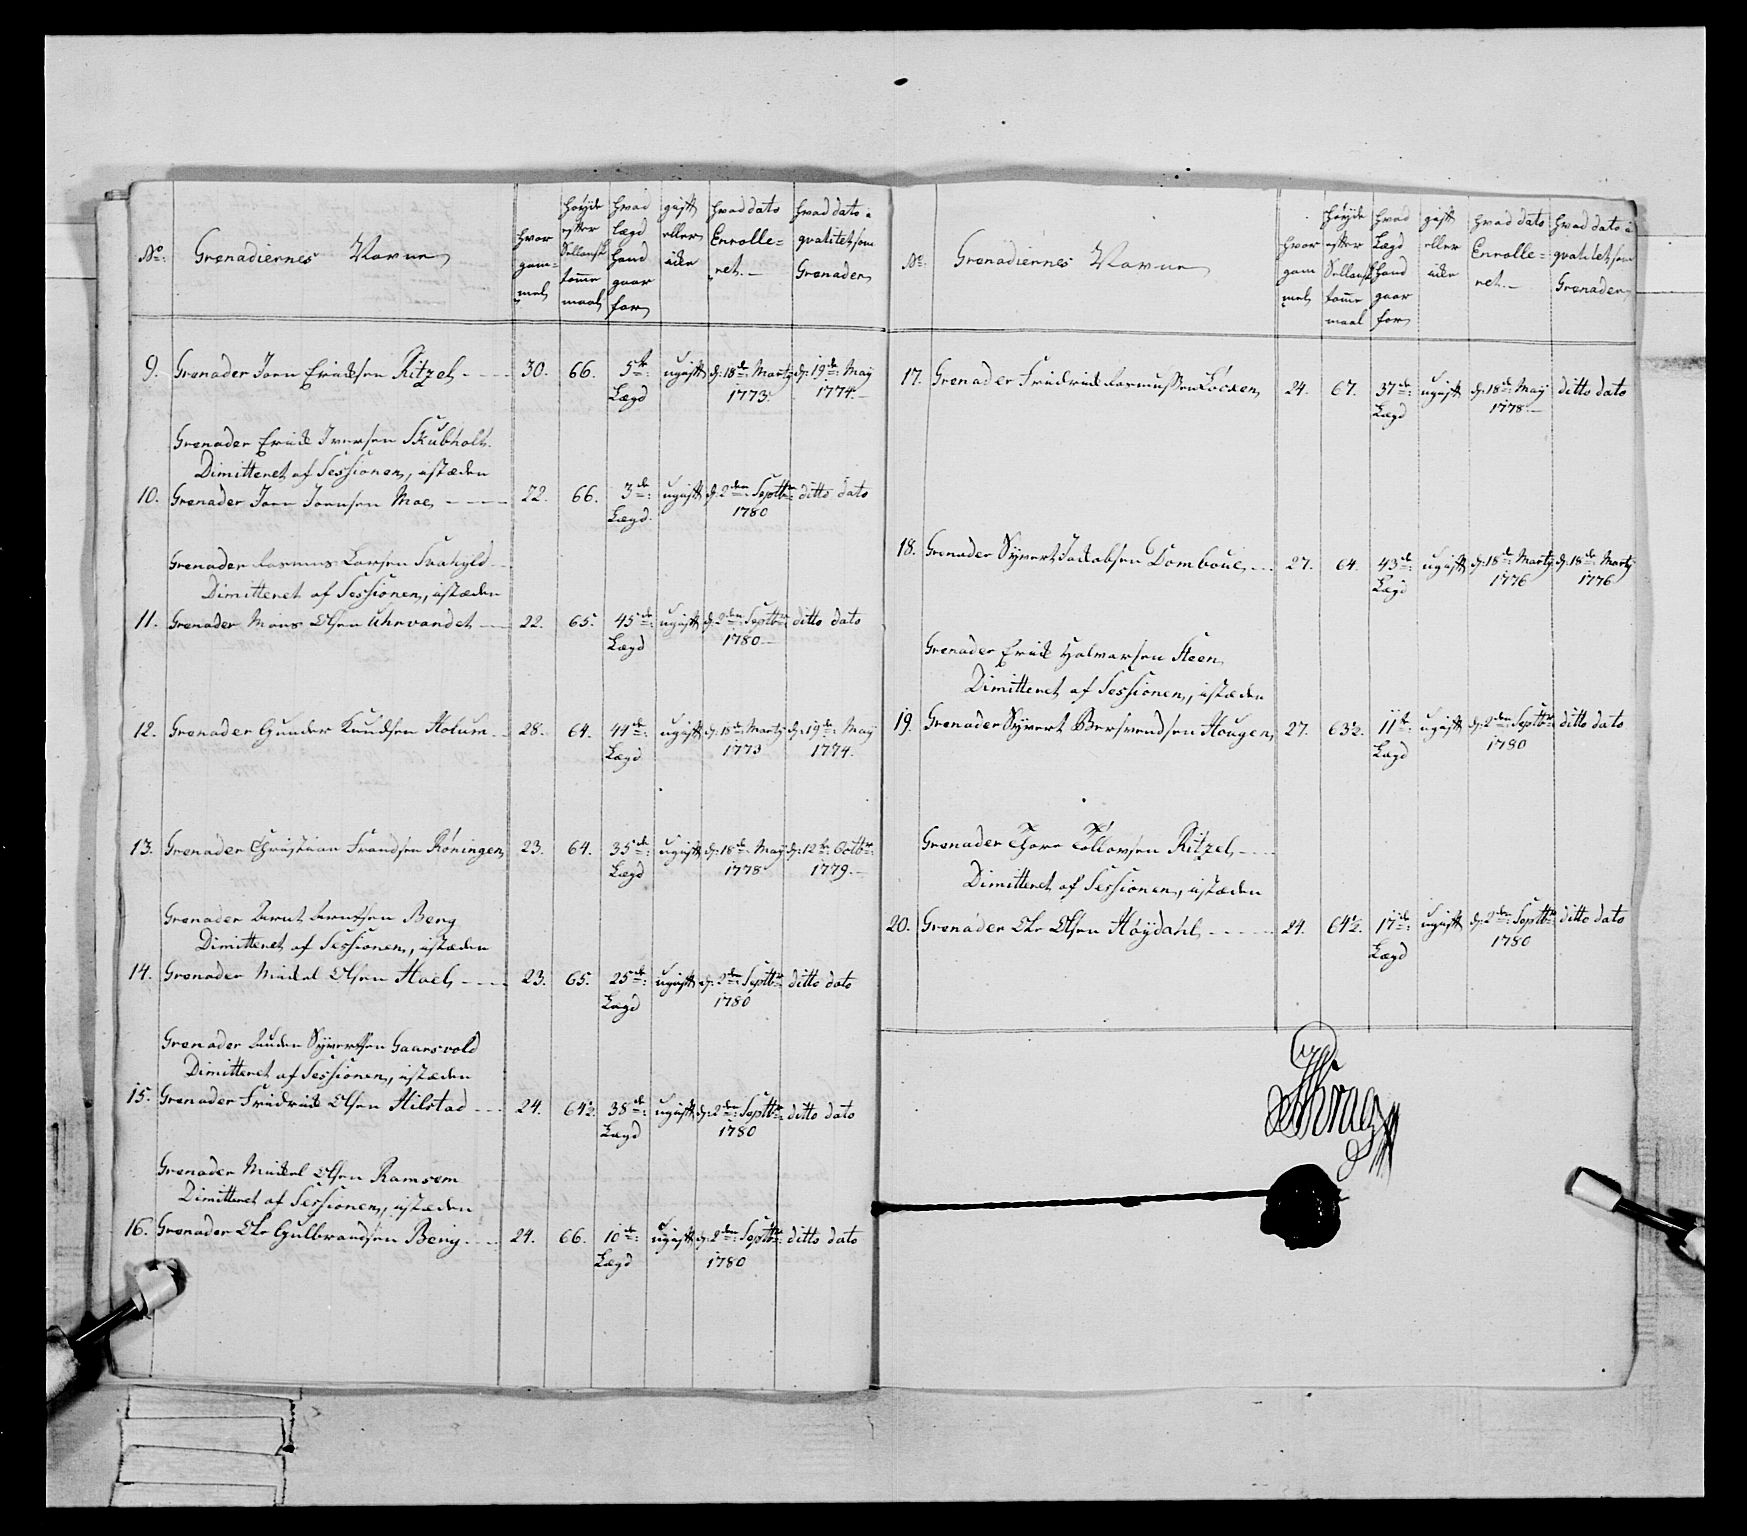 No: Grenadiernes Navne
hvor gammel
høyde efter Sellansk tomme maal
hvad Lægd hand gaar for
gift eller ickē
hvad dato Enrolleret.
hvad dato i qvalitet som Grenader
9. Grenader Joen Erichsen Ritzel 30. 66. 5te: Lægd ugift d: 18de: Marty 1773. d: 19de: May 1774.
Grenader Erick Iversen Skubholt
Dimitteret af Sessionen, istæden
10. Grenader Joen Joensen Moe 22. 66. 3de: Lægd. ugift d: 2den: Septbr: 1780 ditto dato
Grenader Rasmus Larsen
Dimitteret af Sessionen, istæden
11. Grenader Mons Olsen Uhrvandet 22. 65. 45de: Lægd ugift d: 2den: Septbr: 1780 ditto dato
12. Grenader Gunder Knudsen Holum 28. 64. 44de: Lægd ugift d: 18de: Marty 1773 d: 19de: May 1774.
13. Grenader Christian Frandsen Röningen 23. 64. 35de: Lægd ugift d: 18de: May 1778 d: 12te: Octbr: 1779.
Grenader Berg
Dimitteret af Sessionen, istæden
14. Grenader Mickel Olsen Hoel 23. 65. 25de: Lægd ugift d: 2den: Septbr: 1780 ditto dato
Grenader Syversen Gaarsvold
Dimitteret af Sessionen, istæden
15. Grenader Fridrick Olsen Hilstad 24. 64½. 38de: Lægd ugift d: 2den: Septbr: 1780 ditto dato
Grenader Mickel Olsen Ramsem
Dimitteret af Sessionen, istæden
16. Grenader Ole Gulbrandsen Berg 24. 66. 10de: Lægd ugift d: 2den: Septbr: 1780 ditto dato
No: Grenadiernes Navne
hvor gammel
høyde efter Sellansk tomme maal
hvad Lægd hand gaar for
gift eller icke
hvad dato Enrolleret.
hvad dato i qvalitet som Grenader
17. Grenader Fridrick Rasmussen 24. 67. 37de: Lægd ugift d: 18de: May 1778. ditto dato
18. Grenader Syvert Jacobsen Domboue 27. 64. 43de: Lægd ugift d: 18de: Marty 1776 d: 18de: Marty 1776
Grenader Erick Halvorsen Steen
Dimitteret af Sessionen, istæden
19. Grenader Syvert Bersvendsen Hougen 27. 63½. 11te: Lægd ugift d: 2den: Septbr: 1780 ditto dato
Grenader Thore Tollovsen Ritzel
Dimitteret af Sessionen, istæden
20. Grenader Ole Olsen Höydahl 24. 64½. 17de: Lægd ugift d: 2den: Septbr: 1780 ditto dato